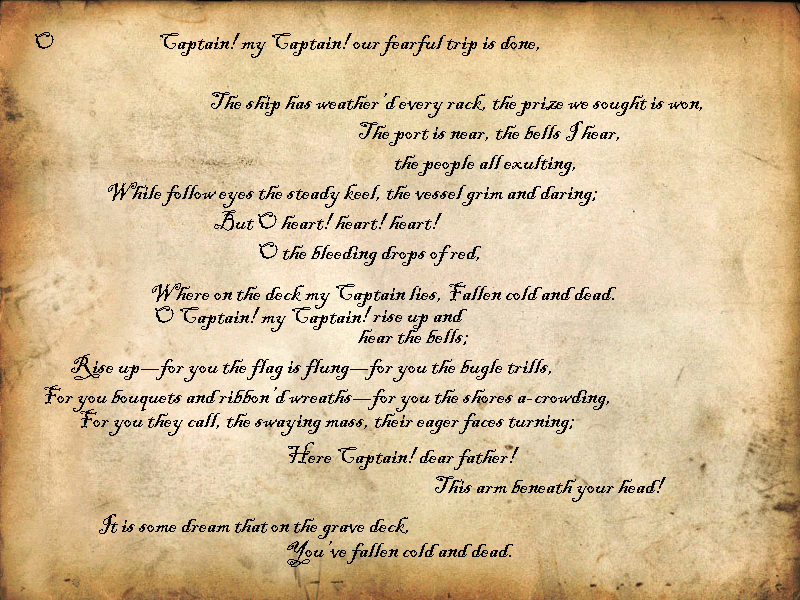 O Captain! my Captain! our fearful trip is done,
The ship has weather'd every rack, the prize we sought is won,
The port is near, the bells I hear,
the people all exulting,
While follow eyes the steady keel, the vessel grim and daring;
But O heart! heart! heart!
O the bleeding drops of red,
Where on the deck my Captain lies, Fallen cold and dead.
O Captain! my Captain! rise up and
hear the bells;
Rise up—for you the flag is flung—for you the bugle trills,
For you bouquets and ribbon'd wreaths—for you the shores a-crowding,
For you they call, the swaying mass, their eager faces turning;
Here Captain! dear father!
This arm beneath your head!
It is some dream that on the grave deck,
You've fallen cold and dead.